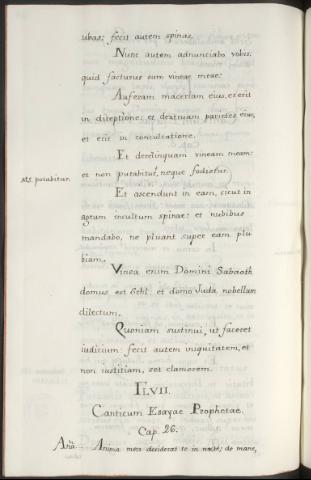 ubas; fecit autem spinas.
Nunc autem adnunciabo vobis:
quid facturus sum vineae meae:
Auferam maceriam eius, et erit
in direptione; et destruam parietes eius,
et erit in conculcatione.
Et derelinquam vineam meam:
ms. putabitur.
et non putabitur, neque fodietur.
Et ascendunt in eam, sicut in
agrum incultum spinae: et nubibus
mandabo, ne pluant super eam plu
biam.
Vinea enim Domini Sabaoth
domus est Srhl: et domo Juda nobellum
dilectum.
Quoniam sustinui, ut faceret
iudicium: fecit autem iniquitatem, et
non iustitiam, set clamorem.
Canticum Esayae Prophetae.
Cap. 26.
Aña. Anima mea desiderat te in nocte; de mane,